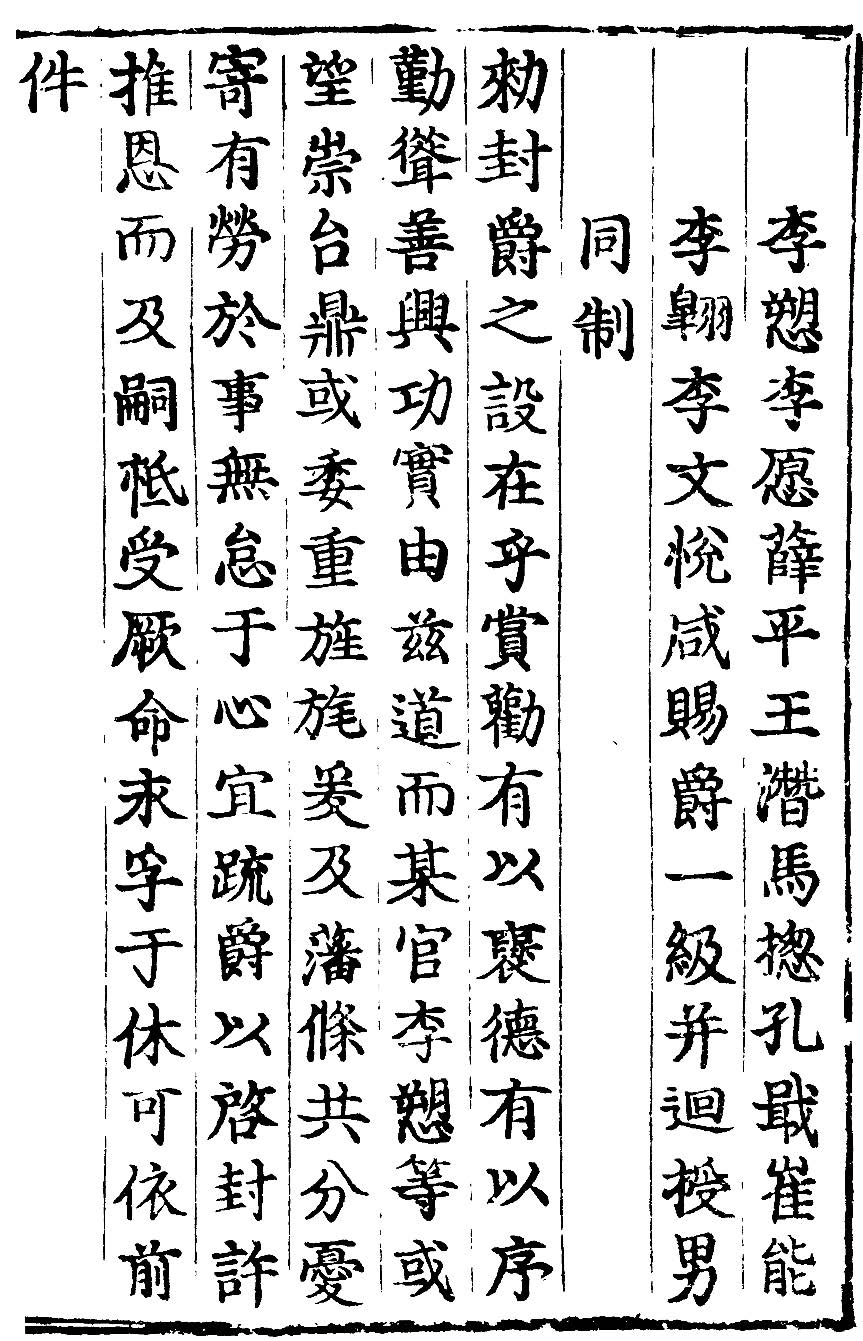 李愬李愿薛平王潛馬摠孔戢崔能
李翱李文恱咸賜爵一級并迴授男
同制
勑封爵之設在乎賞勸有以襃德有以序
勤聳善興功實由兹道而某官李愬等或
望崇台鼎或委重旌旄爰及藩條共分憂
寄有勞於事無怠于心宜疏爵以啓封許
推恩而及嗣柢受厥命永孚于休可依前
件